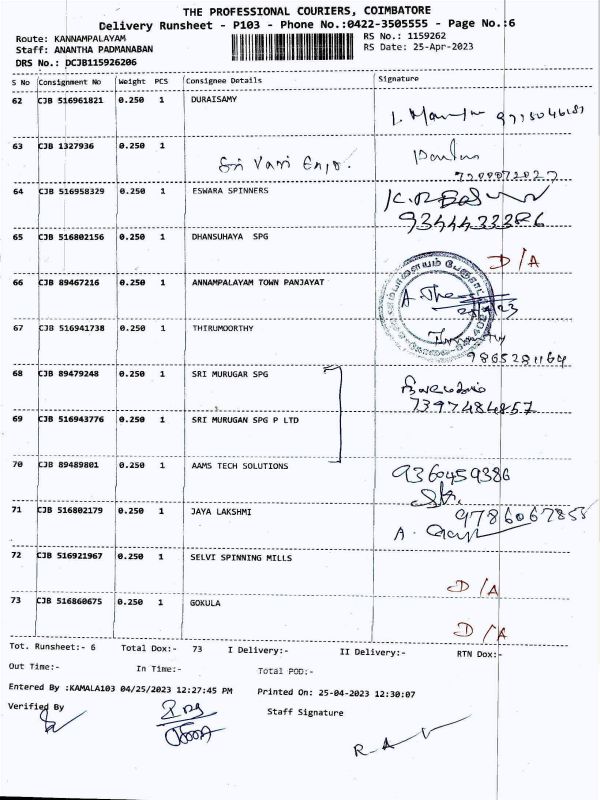 THE PROFESSIONAL COURIERS, COIMBATORE
Delivery Runsheet - P103 - Phone No.:0422-3505555 - Page No.:6
Route: KANNAMPALAYAM
Staff: ANANTHA PADMANABAN
DRS No.: DCJB115926206
RS No.: 1159262
RS Date: 25-Apr-2023
S No Consignment No Weight PCS Consignee Details Signature
62 CJB 516961821 0.250 1 DURAISAMY
63 CJB 1327936 0.250 1 Sri Vari
64 CJB 516958329 0.250 1 ESWARA SPINNERS
9344433386
65 CJB 516802156 0.250 1 DHANSUHAYA SPG D/A
66 CJB 89467216 0.250 1 ANNAMPALAYAM TOWN PANJAYAT
67 CJB 516941738 0.250 1 THIRUMOORTHY
9865281164
68 CJB 89479248 0.250 1 SRI MURUGAR SPG
7397484857
69 CJB 516943776 0.250 1 SRI MURUGAN SPG P LTD
70 CJB 89489801 0.250 1 AAMS TECH SOLUTIONS 9360459386
71 CJB 516802179 0.250 1 JAYA LAKSHMI
72 CJB 516921967 0.250 1 SELVI SPINNING MILLS D/A
73 CJB 516860675 0.250 1 GOKULA D/A
Tot. Runsheet:- 6 Total Dox:- 73 I Delivery:- II Delivery:- RTN Dox:-
Out Time:- In Time:- Total POD:-
Entered By :KAMALA103 04/25/2023 12:27:45 PM Printed On: 25-04-2023 12:30:07
Verified By Staff Signature